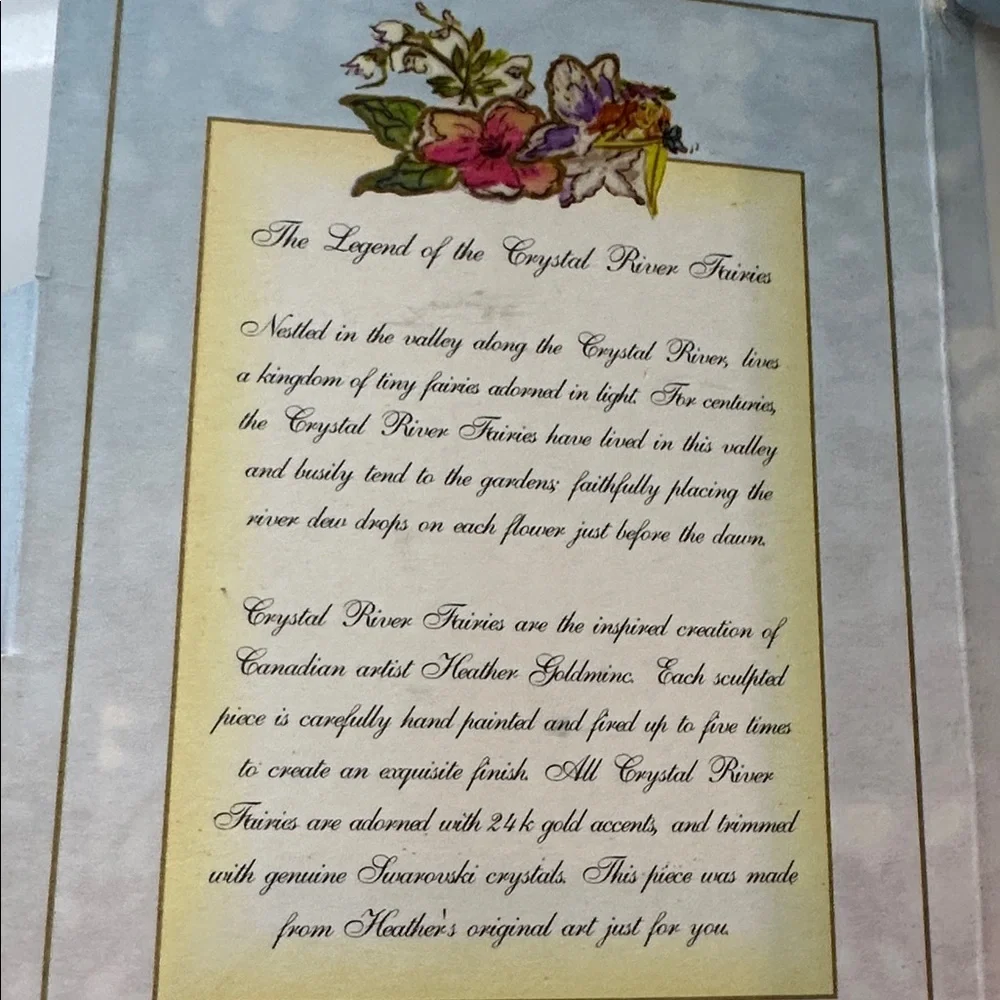 The Legend of the Crystal River Fairies
Nestled in the valley along the Crystal River, lives
a kingdom of tiny fairies adorned in light. For centuries,
the Crystal River Fairies have lived in this valley
and busily tend to the gardens; faithfully placing the
river dew drops on each flower just before the dawn.
Crystal River Fairies are the inspired creation of
Canadian artist Heather Goldminc. Each sculpted
piece is carefully hand painted and fired up to five times
to create an exquisite finish. All Crystal River
Fairies are adorned with 24k gold accents, and trimmed
with genuine Swarovski crystals. This piece was made
from Heather's original art just for you.